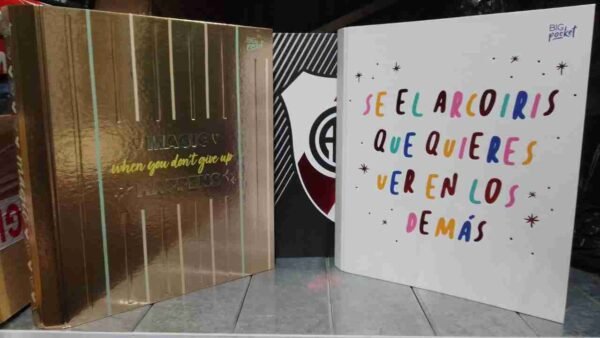 BIG
pocket
MAGIC
when you don't give up
HAPPENS
BIG
pocket
SE EL ARCOIRIS
QUE QUIERES
VER EN LOS
DEMÁS